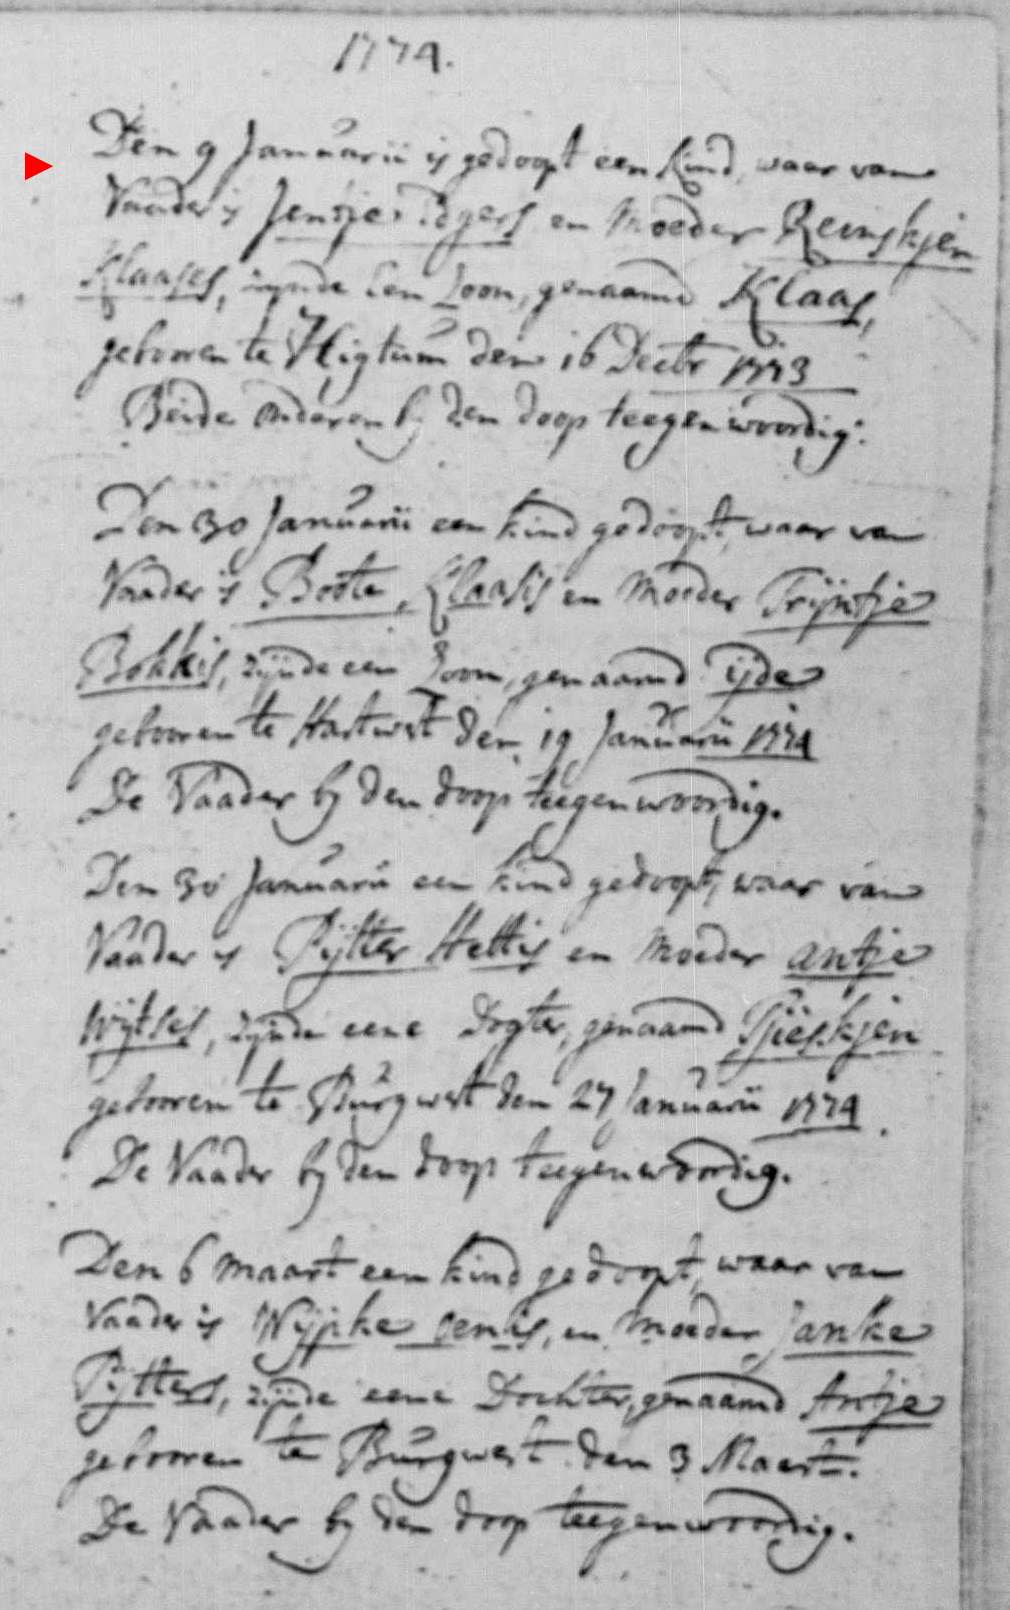 1774.
Den 9 Januarii is gedoopt een Kind, waar van
Vaader is Jentje Edgers en Moeder Reinskjen
Klaases, zijnde een Zoon, genaamd Klaas,
gebooren te Higtum den 16 Decbr 1773
Beide ouderen bij den doop teegenwoordig.
Den 30 Januarii een kind gedoopt, waar van
Vaader is Boote Klaasis en Moeder Trijntje
Bokkis, zijnde een Zoon, genaamd ijde
gebooren te Hartwert den 19 Januarii 1774
De Vaader bij den doop teegenwoordig.
Den 30 Januarii een kind gedoopt, waar van
Vaader is Pijtter Hettis en Moeder antje
Wijtses, zijnde eene Dogter, genaamd Tjieskjen
gebooren te Burgwert den 27 Januarii 1774.
De Vaader bij den doop teegenwoordig.
Den 6 Maart een kind gedoopt, waar van
Vaader is Wijpke oenis, en Moeder Janke
Pijtters, zijnde eene Dochter, genaamd Antje
gebooren te Burgwert den 3 Maert.
De Vaader bij den doop teegenwoordig.